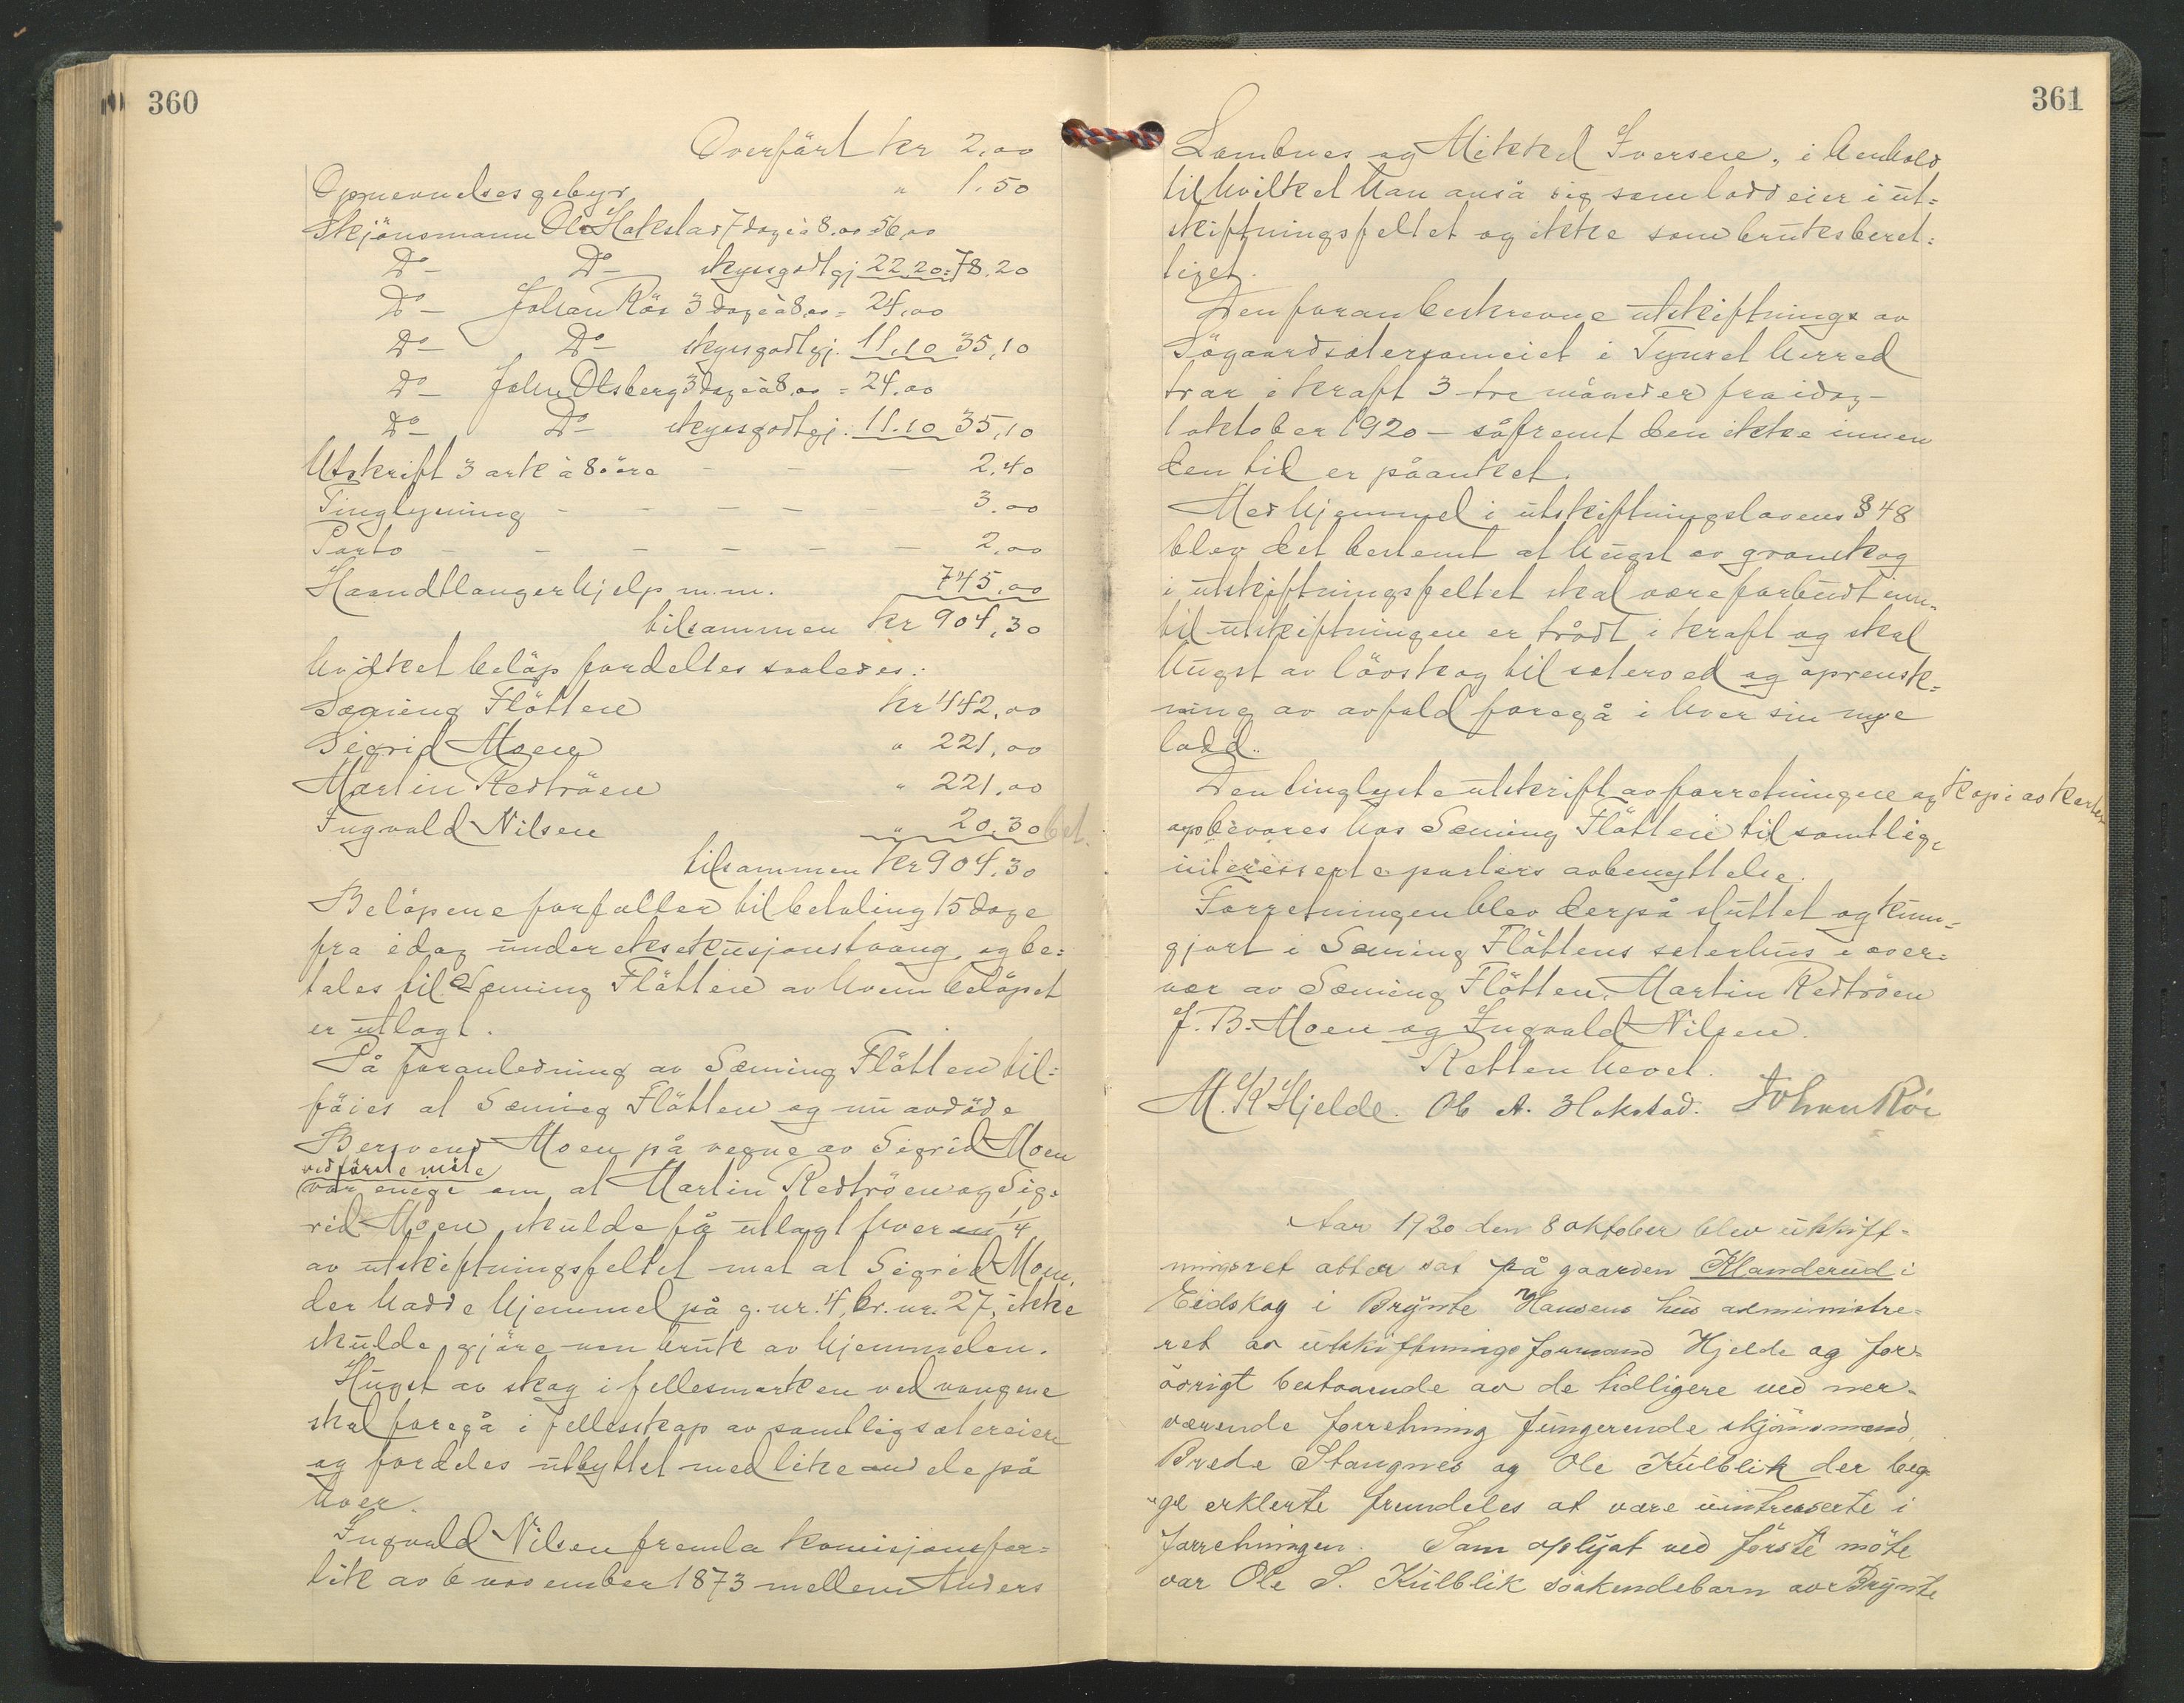 360
Overført kr 2,00
Opnevnelsesgebyr " 1.50
Skjønsmann Ole Hokstad 7 dage à 8.00 = 56,00
Do — Do — skyssgodtgj 22.20 = 78,20
Do — Johan Rör 3 dage à 8,00 = 24,00
Do — Do — skyssgodtgj. 11.10 35,10
Do — John Olsberg 3 dage à 8,00 = 24,00
Do — Do — skyssgodtgj. 11.10 35,10
Utskrift 3 ark à 80 öre — — — 2,40
Tinglysning — — — — — 3.00
Porto — — — — — — 2,00
Haandtlangerhjelp m.m. 745,00
tilsammen kr 904,30
hvilket beløp fordeltes saaledes:
Sæming Flötten kr 442,00
Sigrid Moen " 221,00
Martin Rediröen " 221,00
Ingvald Nilsen " 20,30 bet.
tilsammen kr 904,30
Belöpene forfalder til betaling 15 dage
fra idag under eksekusjonstvang og be=
tales til Sæming Flötten av hvem belöpet
er utlagt.
På foranledning av Sæming Flötten til=
föies at Sæming Flötten og nu avdöde
Bersvend Moen på vegne av Sigrid Moen
ved förste möte
var enige om at Martin Rediröen og Sig=
rid Moen skulde få utlagt hver 1/4
av utskiftningsfeltet mot at Sigrid Moen,
der hadde hjemmel på g.nr. 4, br.nr. 27, ikke
skulde gjöre noen bruk av hjemmelen.
Hugst av skog i fellesmarken ved vangene
skal foregå i fellesskap av samtlig sætereiere
og fordeles utbyttet med like andele på
hver.
Ingvald Nilsen fremla komisjonsfor=
lik av 6 november 1873 mellem Anders
361
Lombnes og Mikkel Iversen, i henhold
til hvilket han anså sig som loddeier i ut=
skiftningsfeltet og ikke som bruksberet=
tiget.
Den foran beskrevne utskiftning av
Sögaardsætersameiet i Tynset herred
trær i kraft 3 tre måneder fra idag —
1 oktober 1920 — såfremt den ikke innen
den tid er påanket.
Med hjemmel i utskiftningslovens § 48
blev det bestemt at hugst av granskog
i utskiftningsfeltet skal være forbudt inn=
til utskiftningen er trådt i kraft og skal
hugst av lövskog til seterved og oprensk=
ning av avfald foregå i hver sin nye
lodd.
Den tinglyste utskrift av forretningen og kopi av kartet
opbevares hos Sæming Flötten til samtlige
interesserte parters avbenyttelse.
Forretningen blev derpå sluttet og kunn=
gjort i Sæming Flöttens seterhus i over=
vær av Sæming Flötten, Martin Rediröen
J. B. Moen og Ingvald Nilsen.
Retten hevet.
M. K Hjelde. Ole A. Hokstad. Johan Rör
Aar 1920 den 8 oktober blev utskift=
ningsret atter sat på gaarden Klanderud i
Eidskog i Brynte Hansens hus administre=
ret av utskiftningsformand Hjelde og for=
övrigt bestaaende av de tidligere ved nær=
værende forretning fungerende skjönsmænd,
Brede Stangnes og Ole Kulblik der beg=
ge erklerte fremdeles at være uintresserte i
forretningen. Som oplyst ved förste möte
var Ole S. Kulblik söskendebarn av Brynte